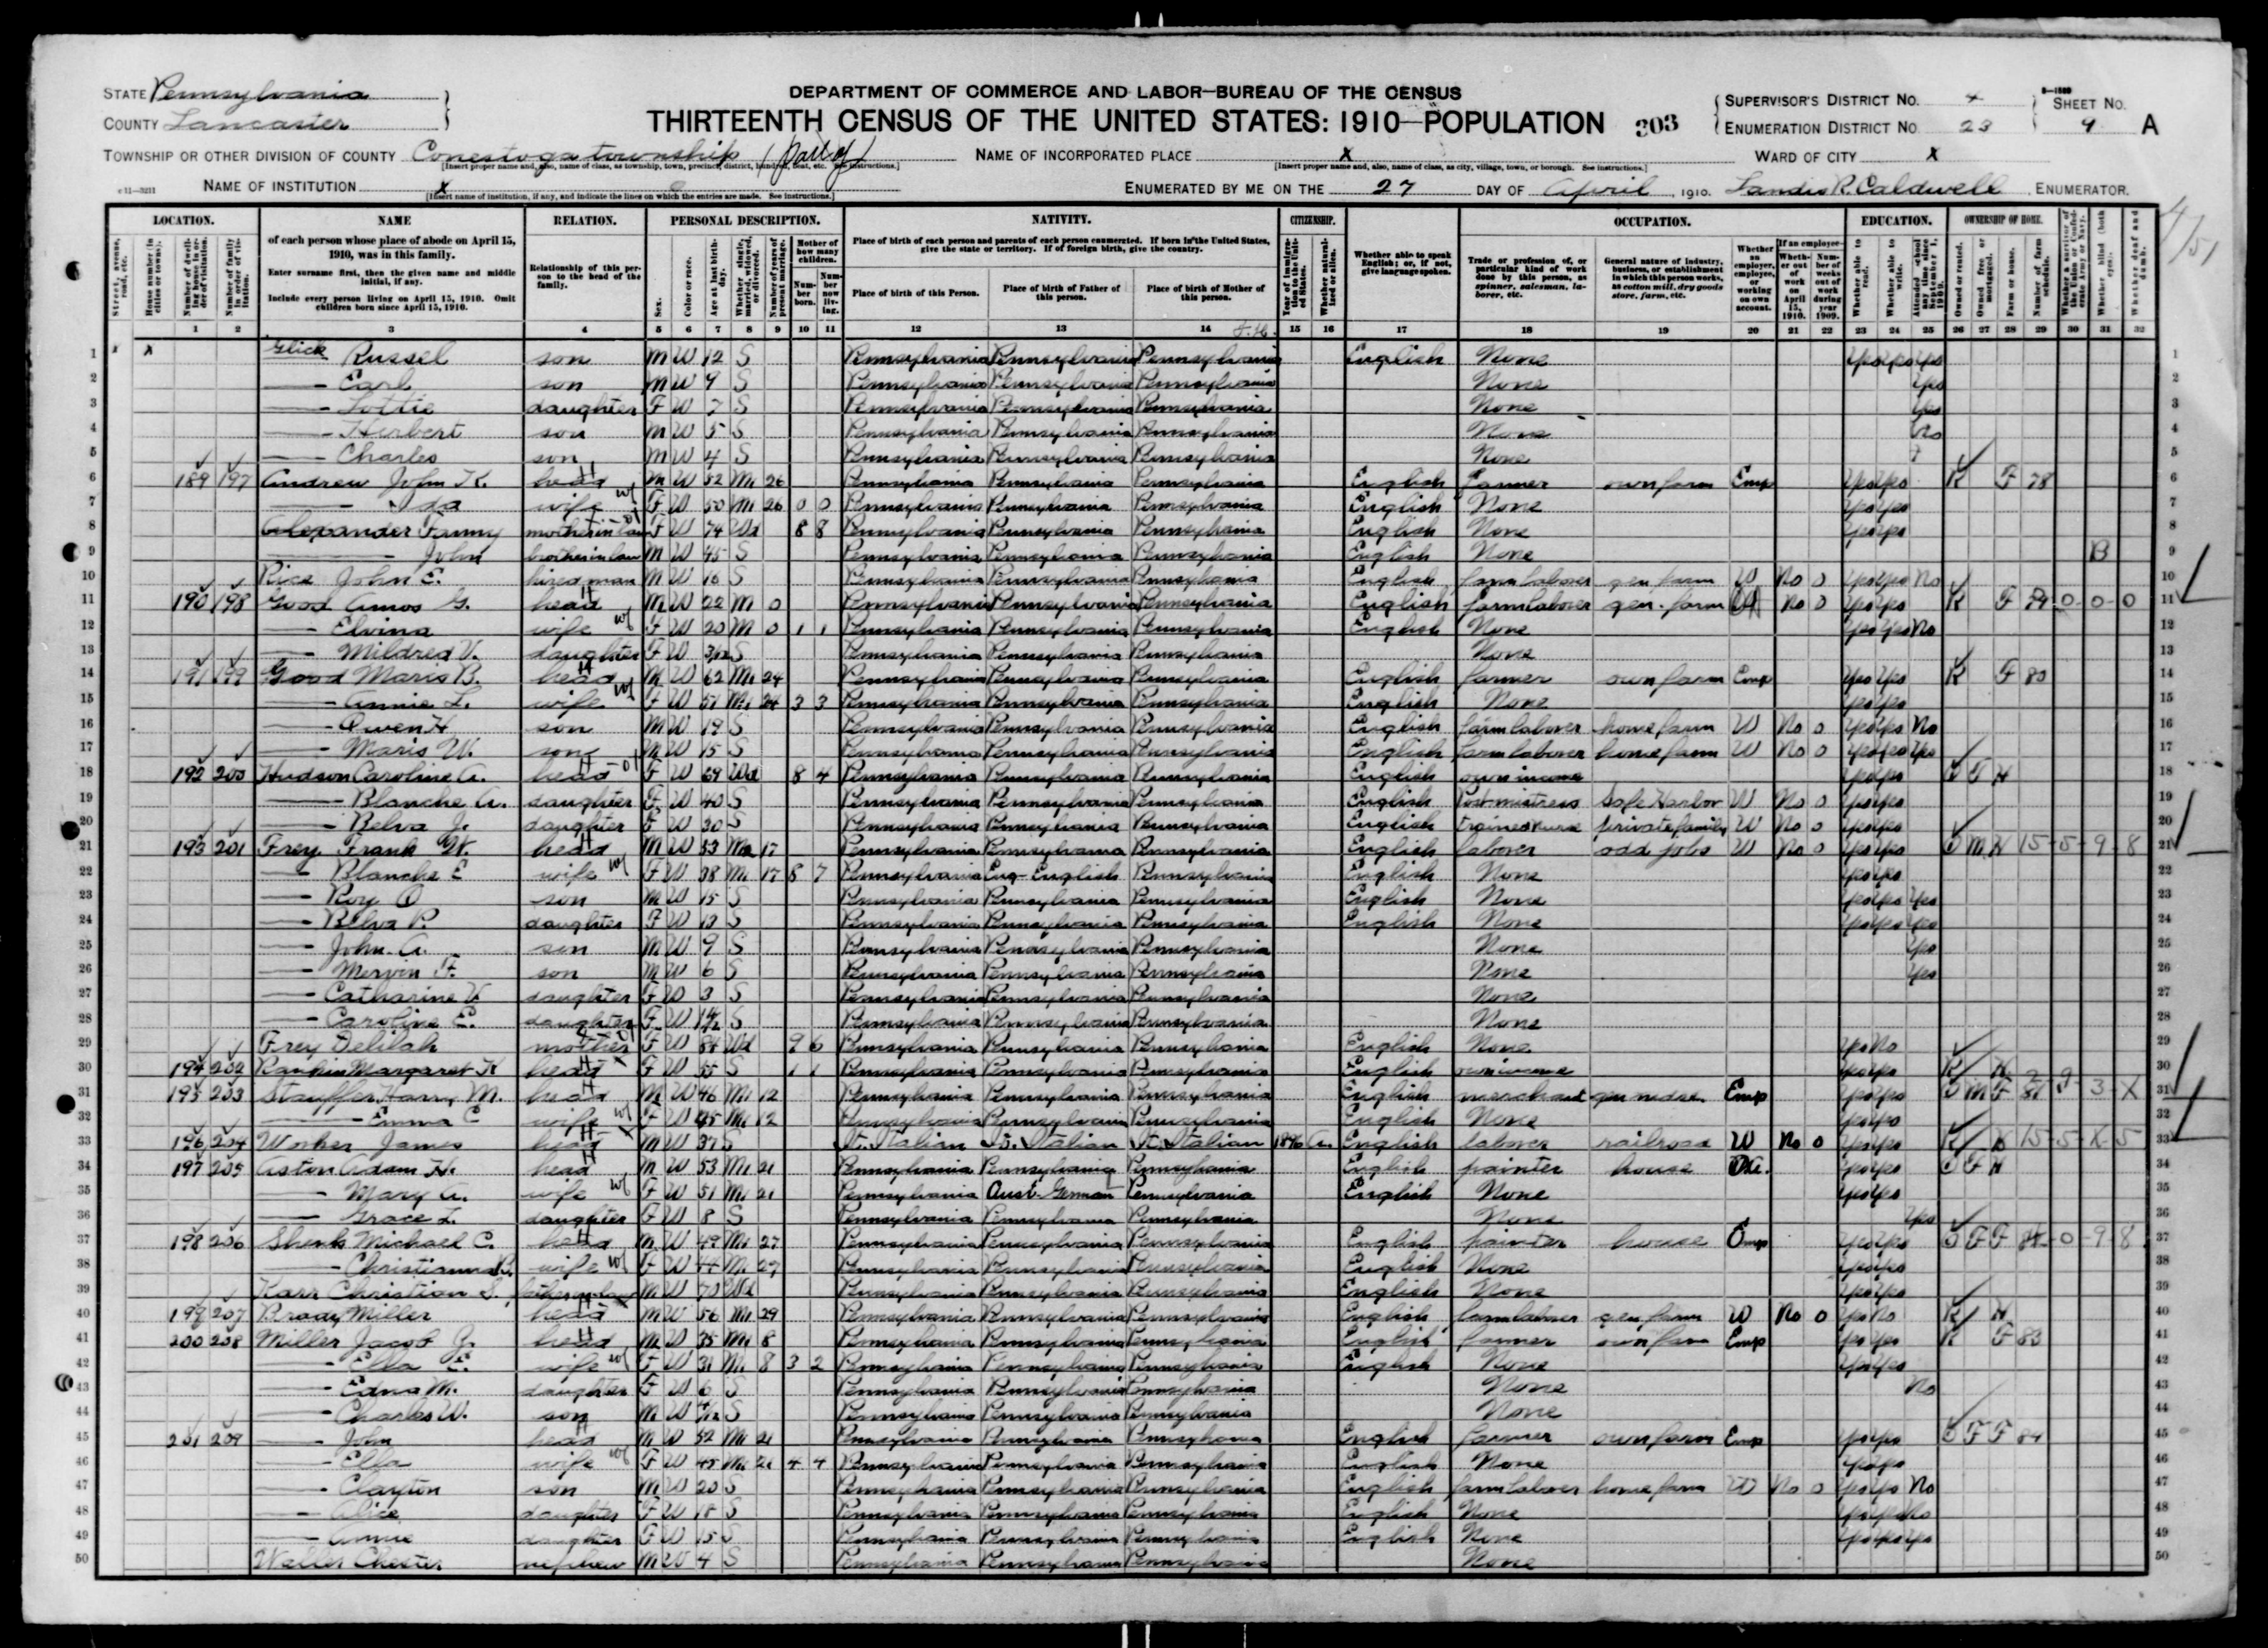 STATE Pennsylvania
COUNTY Lancaster
DEPARTMENT OF COMMERCE AND LABOR—BUREAU OF THE CENSUS
THIRTEENTH CENSUS OF THE UNITED STATES: 1910—POPULATION 303
SUPERVISOR'S DISTRICT NO. 4
ENUMERATION DISTRICT NO. 23
SHEET NO. 9 A
TOWNSHIP OR OTHER DIVISION OF COUNTY Conestoga township (part of)
NAME OF INCORPORATED PLACE X
WARD OF CITY X
NAME OF INSTITUTION X
ENUMERATED BY ME ON THE 27 DAY OF April, 1910. Landis R. Caldwell, ENUMERATOR.
LOCATION. NAME RELATION. PERSONAL DESCRIPTION. NATIVITY. CITIZENSHIP. OCCUPATION. EDUCATION. OWNERSHIP OF HOME.
of each person whose place of abode on April 15, 1910, was in this family.
Enter surname first, then the given name and middle initial, if any.
Include every person living on April 15, 1910. Omit children born since April 15, 1910.
Relationship of this person to the head of the family.
Place of birth of each person and parents of each person enumerated. If born in the United States, give the state or territory. If of foreign birth, give the country.
Place of birth of this Person. Place of birth of Father of this person. Place of birth of Mother of this person.
Whether able to speak English; or, if not, give language spoken.
Trade or profession of, or particular kind of work done by this person, as spinner, salesman, laborer, etc.
General nature of industry, business, or establishment in which this person works, as cotton mill, dry goods store, farm, etc.
1 2 3 4 5 6 7 8 9 10 11 12 13 14 15 16 17 18 19 20 21 22 23 24 25 26 27 28 29 30 31 32
1 Glick Russel son M W 12 S Pennsylvania Pennsylvania Pennsylvania English None Yes Yes Yes
2 — Earl son M W 9 S Pennsylvania Pennsylvania Pennsylvania None Yes
3 — Lottie daughter F W 7 S Pennsylvania Pennsylvania Pennsylvania None Yes
4 — Herbert son M W 5 S Pennsylvania Pennsylvania Pennsylvania None No
5 — Charles son M W 4 S Pennsylvania Pennsylvania Pennsylvania None
6 189 197 Andrew John K. head M W 52 M1 26 Pennsylvania Pennsylvania Pennsylvania English farmer own farm Emp Yes Yes R F 78
7 — Ida wife F W 50 M1 26 0 0 Pennsylvania Pennsylvania Pennsylvania English None Yes Yes
8 Alexander Fanny mother in law F W 74 Wd 8 8 Pennsylvania Pennsylvania Pennsylvania English None Yes Yes
9 — John brother in law M W 45 S Pennsylvania Pennsylvania Pennsylvania English None B
10 Rice John E. hired man M W 16 S Pennsylvania Pennsylvania Pennsylvania English farm laborer gen farm W No 0 Yes Yes No
11 190 198 Good Amos G. head M W 22 M 0 Pennsylvania Pennsylvania Pennsylvania English farm laborer gen. farm No 0 Yes Yes R F 79 0-0-0
12 — Elvina wife F W 20 M 0 1 1 Pennsylvania Pennsylvania Pennsylvania English None Yes Yes No
13 — Mildred V. daughter F W 3/12 S Pennsylvania Pennsylvania Pennsylvania None
14 191 199 Good Maris B. head M W 62 M1 24 Pennsylvania Pennsylvania Pennsylvania English farmer own farm Emp Yes Yes R F 80
15 — Annie L. wife F W 51 M1 24 3 3 Pennsylvania Pennsylvania Pennsylvania English None Yes Yes
16 — Owen H son M W 19 S Pennsylvania Pennsylvania Pennsylvania English farm laborer home farm W No 0 Yes Yes No
17 — Maris W. son M W 15 S Pennsylvania Pennsylvania Pennsylvania English farm laborer home farm W No 0 Yes Yes Yes
18 192 200 Hudson Caroline A. head F W 69 Wd 8 4 Pennsylvania Pennsylvania Pennsylvania English own income Yes Yes O F H
19 — Blanche A. daughter F W 40 S Pennsylvania Pennsylvania Pennsylvania English Postmistress Safe Harbor W No 0 Yes Yes
20 — Belva J. daughter F W 30 S Pennsylvania Pennsylvania Pennsylvania English trained nurse private family W No 0 Yes Yes
21 193 201 Frey Frank W. head M W 53 M2 17 Pennsylvania Pennsylvania Pennsylvania English laborer odd jobs W No 0 Yes Yes O M H 15-5-9-8
22 — Blanche E wife F W 38 M1 17 8 7 Pennsylvania Eng-English Pennsylvania English None Yes Yes
23 — Roy O son M W 15 S Pennsylvania Pennsylvania Pennsylvania English None Yes Yes Yes
24 — Belva P. daughter F W 13 S Pennsylvania Pennsylvania Pennsylvania English None Yes Yes Yes
25 — John A. son M W 9 S Pennsylvania Pennsylvania Pennsylvania None Yes
26 — Mervin F. son M W 6 S Pennsylvania Pennsylvania Pennsylvania None Yes
27 — Catharine V. daughter F W 3 S Pennsylvania Pennsylvania Pennsylvania None
28 — Caroline E. daughter F W S Pennsylvania Pennsylvania Pennsylvania None
29 Frey Delilah mother F W 84 Wd 9 6 Pennsylvania Pennsylvania Pennsylvania English None Yes No
30 194 202 Rankin Margaret K head F W 55 S 1 1 Pennsylvania Pennsylvania Pennsylvania English own income Yes Yes R H
31 195 203 Stauffer Harry M. head M W 46 M1 12 Pennsylvania Pennsylvania Pennsylvania English merchant gen mdse. Emp Yes Yes O M F 81 3-X
32 — Emma C wife F W 45 M1 12 Pennsylvania Pennsylvania Pennsylvania English None Yes Yes
33 196 204 Worker James head M W 37 S It. Italian It. Italian It. Italian English laborer railroad W No 0 Yes Yes R H 15-5-X-5
34 197 205 Aston Adam H. head M W 53 M1 21 Pennsylvania Pennsylvania Pennsylvania English painter house Yes Yes O F H
35 — Mary A. wife F W 51 M1 21 Pennsylvania Aust-German Pennsylvania English None Yes Yes
36 — Grace L. daughter F W 8 S Pennsylvania Pennsylvania Pennsylvania None Yes
37 198 206 Shenk Michael C. head M W 49 M1 27 Pennsylvania Pennsylvania Pennsylvania English painter house Yes Yes O F F 0-9-8
38 — Christianna wife F W 44 M1 27 Pennsylvania Pennsylvania Pennsylvania English None Yes Yes
39 Karr Christian S. father in law M W 70 Wd Pennsylvania Pennsylvania Pennsylvania English None Yes Yes
40 199 207 Brady Miller head M W 56 M1 29 Pennsylvania Pennsylvania Pennsylvania English farm laborer gen farm W No 0 Yes No R H
41 200 208 Miller Jacob Z. head M W 35 M1 8 Pennsylvania Pennsylvania Pennsylvania English farmer own farm Emp Yes Yes R F 83
42 — Ella E. wife F W 31 M1 8 3 2 Pennsylvania Pennsylvania Pennsylvania English None Yes Yes
43 — Edna M. daughter F W 6 S Pennsylvania Pennsylvania Pennsylvania None No
44 — Charles W. son M W S Pennsylvania Pennsylvania Pennsylvania None
45 201 209 — John head M W 52 M1 21 Pennsylvania Pennsylvania Pennsylvania English farmer own farm Emp Yes Yes O F F 84
46 — Ella wife F W 45 M1 21 4 4 Pennsylvania Pennsylvania Pennsylvania English None Yes Yes
47 — Clayton son M W 20 S Pennsylvania Pennsylvania Pennsylvania English farm laborer home farm W No 0 Yes Yes No
48 — Alice daughter F W 18 S Pennsylvania Pennsylvania Pennsylvania English None Yes Yes No
49 — Annie daughter F W 15 S Pennsylvania Pennsylvania Pennsylvania English None Yes Yes Yes
50 Waller Chester nephew M W 4 S Pennsylvania Pennsylvania Pennsylvania None